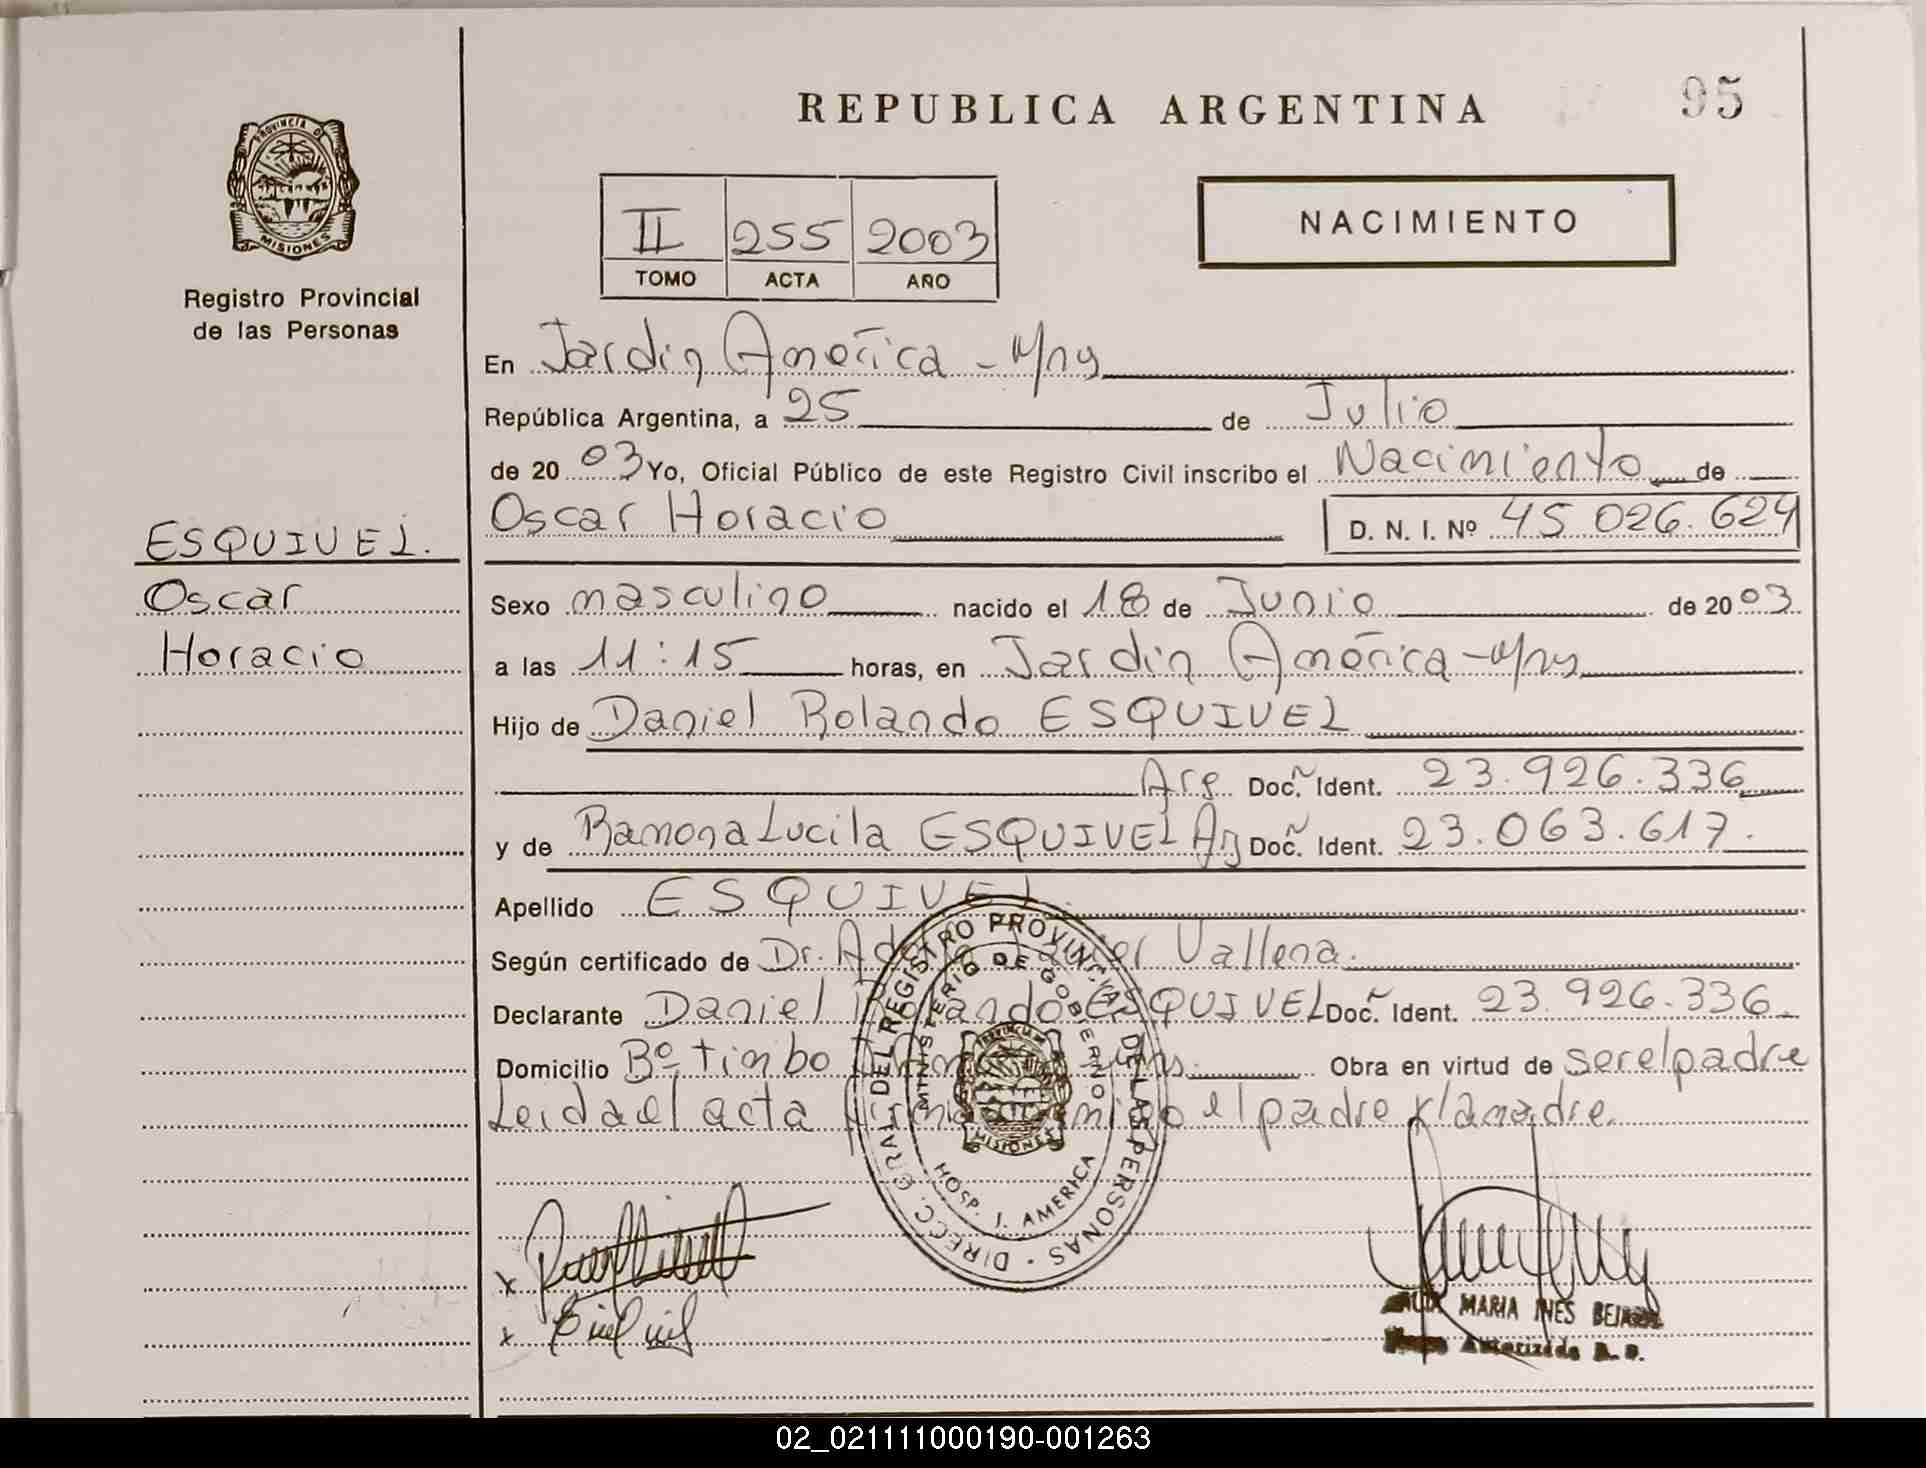 REPUBLICA ARGENTINA
95
PROVINCIA DE
MISIONES
Registro Provincial
de las Personas
II 255 2003
TOMO ACTA AÑO
NACIMIENTO
En Jardin América - Mns
República Argentina, a 25 de Julio
de 2003 Yo, Oficial Público de este Registro Civil inscribo el Nacimiento de
Oscar Horacio D. N. I. Nº 45 026. 624
ESQUIVEL.
Oscar
Horacio
Sexo masculino nacido el 18 de Junio de 2003
a las 11:15 horas, en Jardin América - Mns
Hijo de Daniel Rolando ESQUIVEL
Arg Doc. Ident. 23.926.336
y de Ramona Lucila ESQUIVEL Arg Doc. Ident. 23.063.617.
Apellido ESQUIVEL.
Según certificado de Dr. Vallena.
Declarante Daniel Rolando ESQUIVEL Doc. Ident. 23.926.336.
Domicilio Bº timbo Mns. Obra en virtud de ser el padre
Leida el acta el padre y la madre.
DIRECC. GRAL. DEL REGISTRO PROVINCIAL DE LAS PERSONAS
MINISTERIO DE GOBIERNO
MISIONES
HOSP. J. AMERICA
x
x Esquivel
MARIA INES
Autorizada
02_021111000190-001263